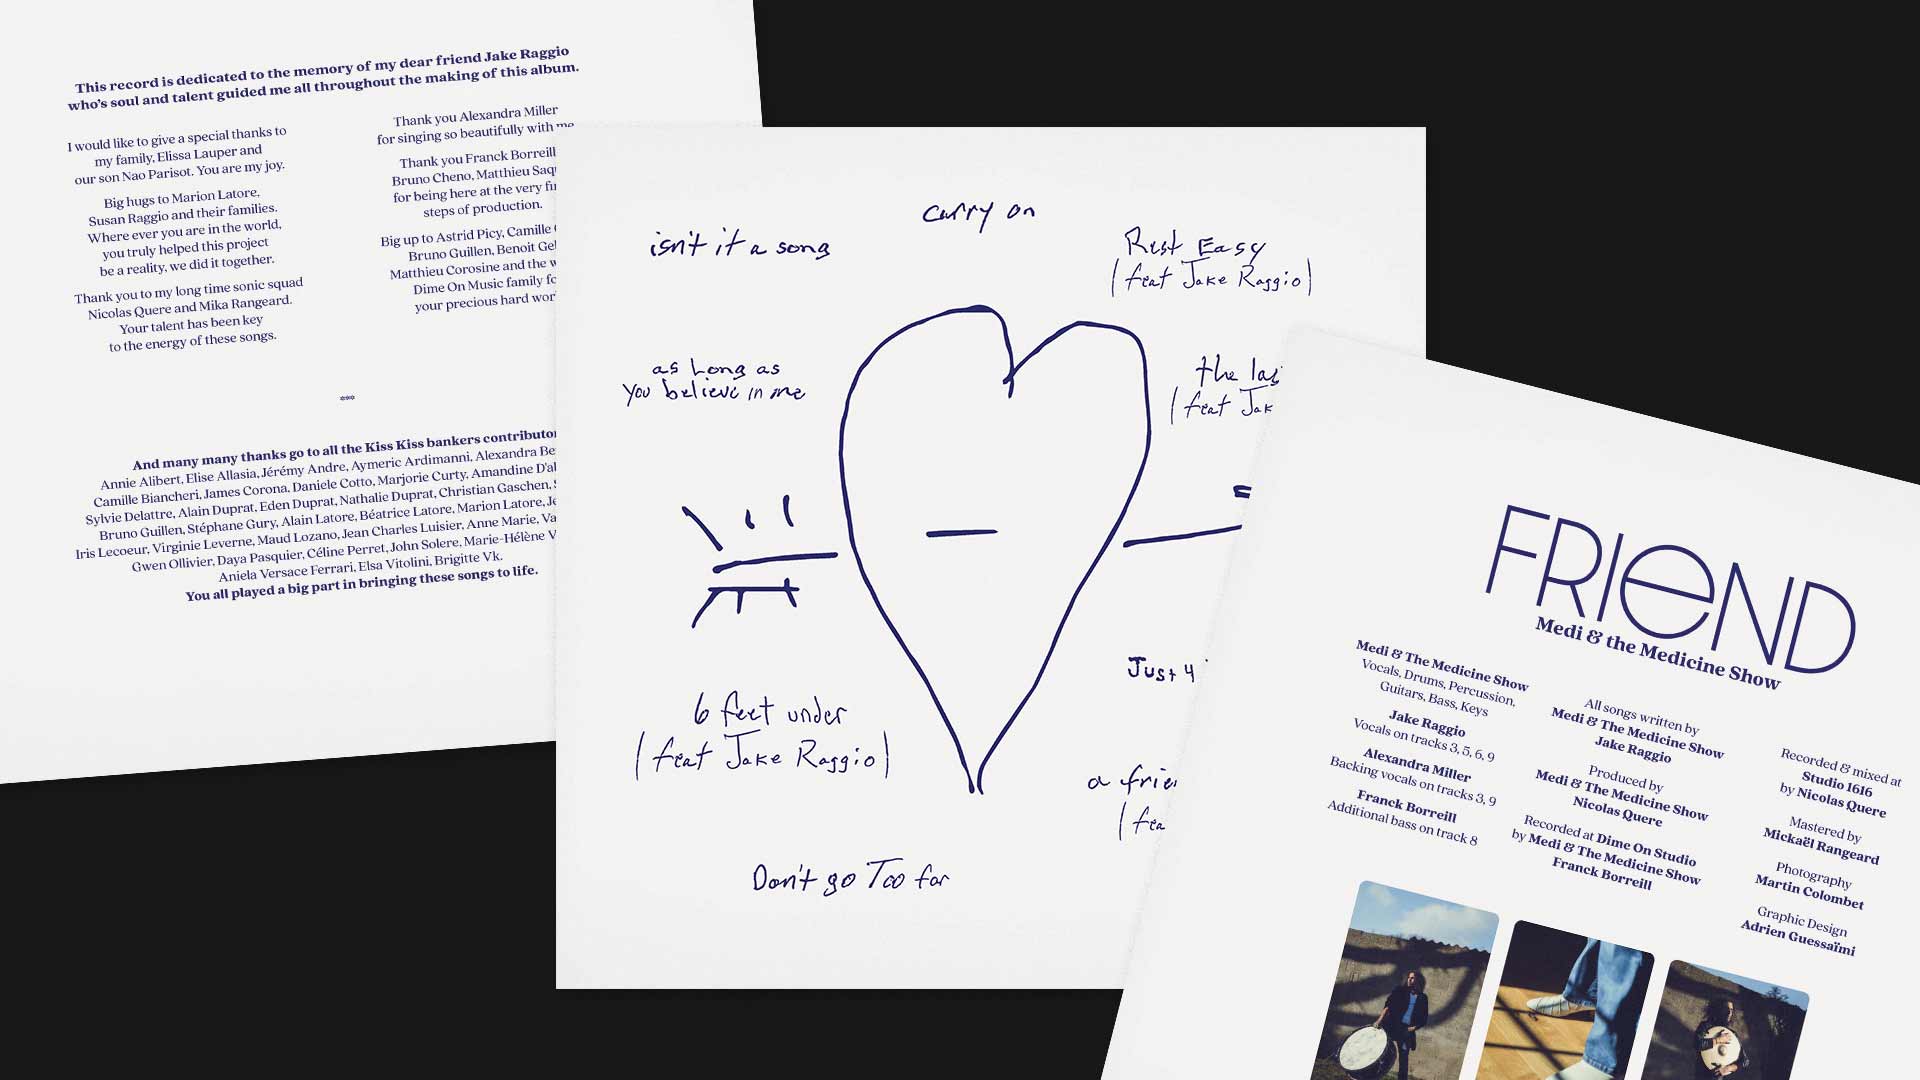 This record is dedicated to the memory of my dear friend Jake Raggio
who's soul and talent guided me all throughout the making of this album.
I would like to give a special thanks to
my family, Elissa Lauper and
our son Nao Parisot. You are my joy.
Big hugs to Marion Latore,
Susan Raggio and their families.
Where ever you are in the world,
you truly helped this project
be a reality, we did it together.
Thank you to my long time sonic squad
Nicolas Quere and Mika Rangeard.
Your talent has been key
to the energy of these songs.
Thank you Alexandra Miller
for singing so beautifully with me
Thank you Franck Borreill
Bruno Cheno, Matthieu
for being here at the very
steps of production.
Big up to Astrid Picy, Camille
Bruno Guillen, Benoit
Matthieu Corosine and the
Dime On Music family
your precious hard
***
And many many thanks go to all the Kiss Kiss bankers
Annie Alibert, Elise Allasia, Jérémy Andre, Aymeric Ardimanni, Alexandra
Camille Biancheri, James Corona, Daniele Cotto, Marjorie Curty, Amandine
Sylvie Delattre, Alain Duprat, Eden Duprat, Nathalie Duprat, Christian Gaschen,
Bruno Guillen, Stéphane Gury, Alain Latore, Béatrice Latore, Marion Latore,
Iris Lecoeur, Virginie Leverne, Maud Lozano, Jean Charles Luisier, Anne Marie,
Gwen Ollivier, Daya Pasquier, Céline Perret, John Solere, Marie-Hélène
Aniela Versace Ferrari, Elsa Vitolini, Brigitte Vk.
You all played a big part in bringing these songs to life.
isn't it a song
carry on
Rest Easy
(feat Jake Raggio)
as long as
you believe in me
the
(feat
6 feet under
(feat Jake Raggio)
Just 4
a
Don't go Too far
FRIEND
Medi & the Medicine Show
Medi & The Medicine Show
Vocals, Drums, Percussion,
Guitars, Bass, Keys
Jake Raggio
Vocals on tracks 3, 5, 6, 9
Alexandra Miller
Backing vocals on tracks 3, 9
Franck Borreill
Additional bass on track 8
All songs written by
Medi & The Medicine Show
Jake Raggio
Produced by
Medi & The Medicine Show
Nicolas Quere
Recorded at Dime On Studio
by Medi & The Medicine Show
Franck Borreill
Recorded & mixed at
Studio 1616
by Nicolas Quere
Mastered by
Mickaël Rangeard
Photography
Martin Colombet
Graphic Design
Adrien Guessaïmi